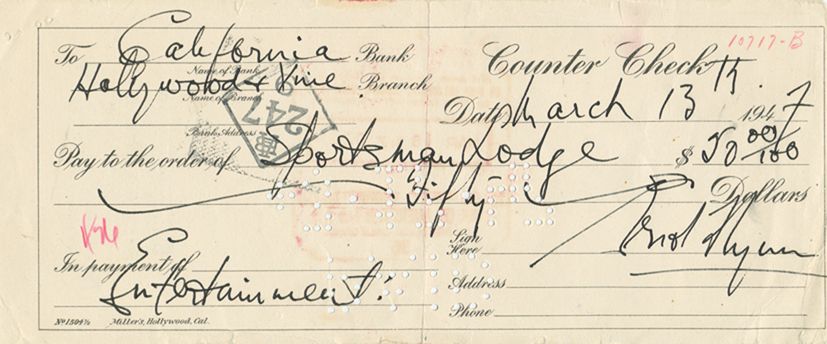 10717-B
To California Bank
Name of Bank
Counter Check
Hollywood & Vine Branch
Name of Branch
Date March 13th. 1947
Bank Address
247
Pay to the order of Sportsman Lodge $ 50 00/100
Fifty Dollars
Sign Here Errol Flynn
In payment of
Entertainment.
Address
Phone
No 1504½ Miller's, Hollywood, Cal.